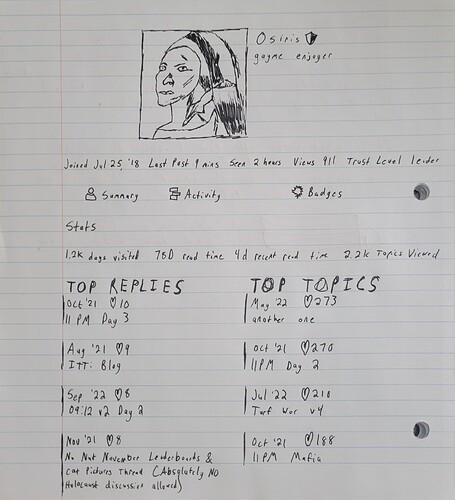 Osiris
gayme enjoyer
Joined Jul 25, '18 Last Post 9 mins Seen 2 hours Views 911 Trust Level leader
Summary Activity Badges
Stats
1.2k days visited 78D read time 4d recent read time 2.2k Topics Viewed
TOP REPLIES
Oct '21 ♡10
11 PM Day 3
Aug '21 ♡9
ITT: Blog
Sep '22 ♡8
09:12 v2 Day 2
Nov '21 ♡8
No Nut November Leaderboards &
Cat Pictures Thread (Absolutely NO
Holocaust discussion allowed)
TOP TOPICS
May '22 ♡273
another one
Oct '21 ♡270
11PM Day 2
Jul '22 ♡210
Turf War v4
Oct '21 ♡188
11PM Mafia